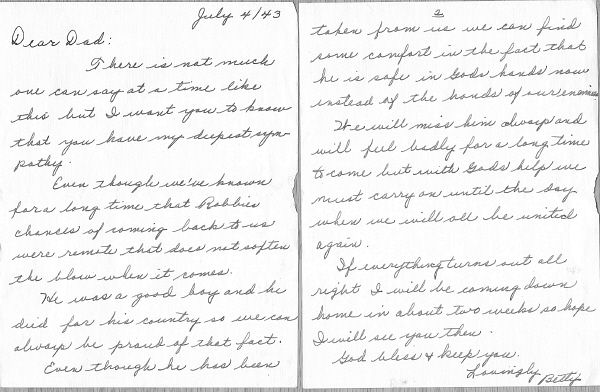 July 4/43
Dear Dad:
There is not much
one can say at a time like
this but I want you to know
that you have my deepest sym-
pathy.
Even though we've known
for a long time that Robbies
chances of coming back to us
were remote that does not soften
the blow when it comes.
He was a good boy and he
died for his country so we can
always be proud of that fact.
Even though he has been
2
taken from us we can find
some comfort in the fact that
he is safe in Gods hands now
instead of the hands of our enemies
We will miss him always and
will feel badly for a long time
to come but with Gods help we
must carry on until the day
when we will all be united
again.
If everything turns out all
right I will be coming down
home in about two weeks so hope
I will see you then.
God bless & keep you.
Lovingly
Betty